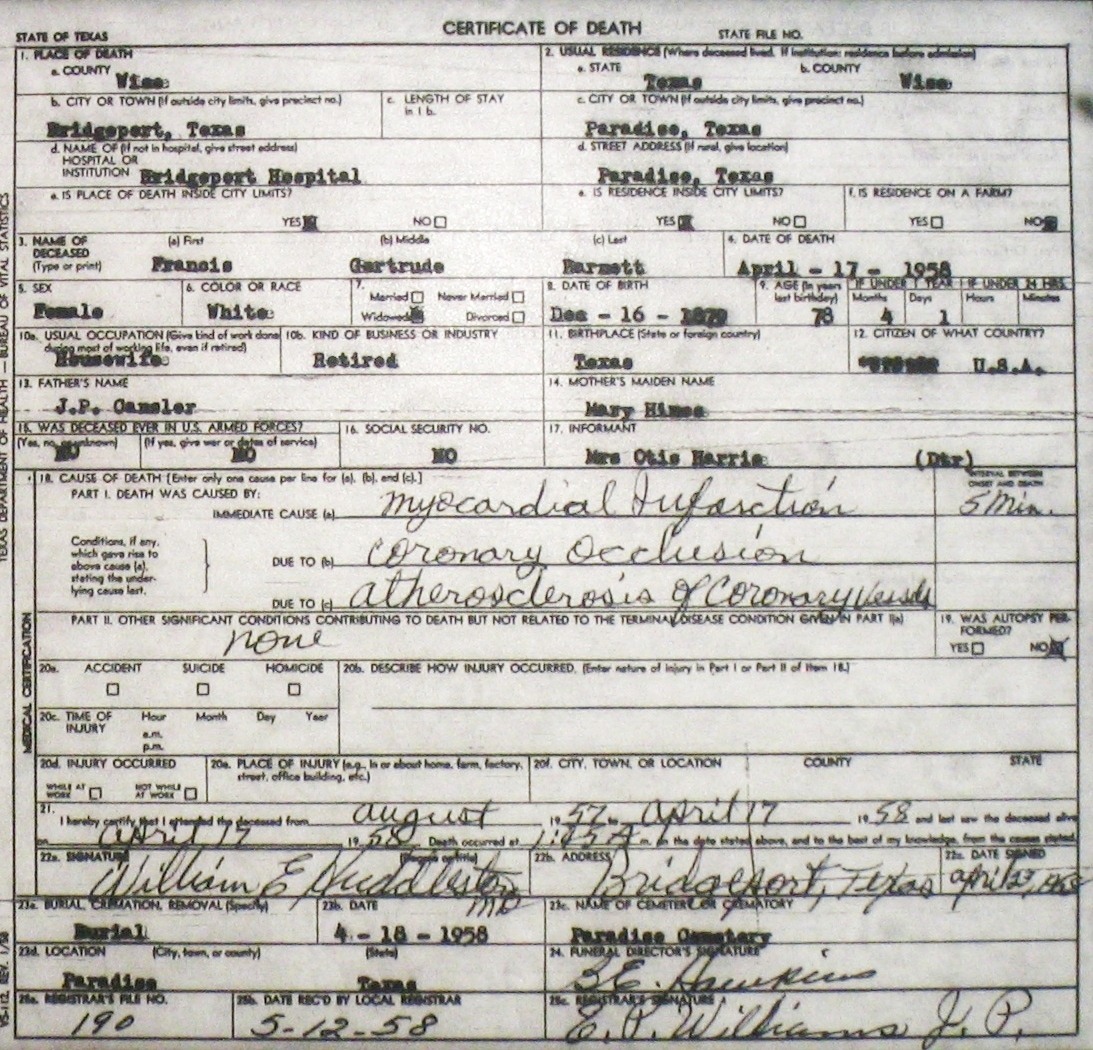 CERTIFICATE OF DEATH
STATE OF TEXAS STATE FILE NO.
1. PLACE OF DEATH
a. COUNTY
Wise
2. USUAL RESIDENCE (Where deceased lived. If institution: residence before admission)
a. STATE b. COUNTY
Texas Wise
b. CITY OR TOWN (If outside city limits, give precinct no.)
Bridgeport, Texas
c. LENGTH OF STAY
in 1 b.
c. CITY OR TOWN (If outside city limits, give precinct no.)
Paradise, Texas
d. NAME OF (If not in hospital, give street address)
HOSPITAL OR
INSTITUTION Bridgeport Hospital
d. STREET ADDRESS (If rural, give location)
Paradise, Texas
e. IS PLACE OF DEATH INSIDE CITY LIMITS?
YES NO
e. IS RESIDENCE INSIDE CITY LIMITS?
YES NO
f. IS RESIDENCE ON A FARM?
YES NO
3. NAME OF
DECEASED
(Type or print)
(a) First (b) Middle (c) Last
Francis Gertrude Barnett
4. DATE OF DEATH
April - 17 - 1958
5. SEX
Female
6. COLOR OR RACE
White
7.
Married Never Married
Widowed Divorced
8. DATE OF BIRTH
Dec - 16 - 1879
9. AGE (In years
last birthday)
78
IF UNDER 1 YEAR IF UNDER 24 HRS.
Months Days Hours Minutes
4 1
10a. USUAL OCCUPATION (Give kind of work done
during most of working life, even if retired)
Housewife
10b. KIND OF BUSINESS OR INDUSTRY
Retired
11. BIRTHPLACE (State or foreign country)
Texas
12. CITIZEN OF WHAT COUNTRY?
U.S.A.
13. FATHER'S NAME
J.P. Cansler
14. MOTHER'S MAIDEN NAME
Mary Himes
15. WAS DECEASED EVER IN U.S. ARMED FORCES?
(Yes, no, or unknown) (If yes, give war or dates of service)
NO NO
16. SOCIAL SECURITY NO.
NO
17. INFORMANT
Mrs Otis Harris (Dtr)
18. CAUSE OF DEATH [Enter only one cause per line for (a), (b), and (c).]
INTERVAL BETWEEN
ONSET AND DEATH
PART I. DEATH WAS CAUSED BY:
IMMEDIATE CAUSE (a) myocardial Infarction 5 Min.
Conditions, if any,
which gave rise to
above cause (a),
stating the under-
lying cause last.
DUE TO (b) coronary Occlusion
DUE TO (c) atherosclerosis of Coronary Vessels
PART II. OTHER SIGNIFICANT CONDITIONS CONTRIBUTING TO DEATH BUT NOT RELATED TO THE TERMINAL DISEASE CONDITION GIVEN IN PART I(a)
none
19. WAS AUTOPSY PER-
FORMED?
YES NO
20a. ACCIDENT SUICIDE HOMICIDE
20b. DESCRIBE HOW INJURY OCCURRED. (Enter nature of injury in Part I or Part II of item 18.)
20c. TIME OF
INJURY
Hour Month Day Year
a.m.
p.m.
20d. INJURY OCCURRED
WHILE AT
WORK
NOT WHILE
AT WORK
20e. PLACE OF INJURY (e.g., in or about home, farm, factory,
street, office building, etc.)
20f. CITY, TOWN, OR LOCATION COUNTY STATE
21.
I hereby certify that I attended the deceased from august 19 57 to April 17 19 58 and last saw the deceased alive
on April 17 19 58. Death occurred at 1:45 A m. on the date stated above, and to the best of my knowledge, from the causes stated.
22a. SIGNATURE (Degree or title)
William E Huddleston
MD
22b. ADDRESS
Bridgeport, Texas
22c. DATE SIGNED
23a. BURIAL, CREMATION, REMOVAL (Specify)
Burial
23b. DATE
4 - 18 - 1958
23c. NAME OF CEMETERY OR CREMATORY
Paradise Cemetery
23d. LOCATION (City, town, or county) (State)
Paradise Texas
24. FUNERAL DIRECTOR'S SIGNATURE
Hawkins
25a. REGISTRAR'S FILE NO.
190
25b. DATE REC'D BY LOCAL REGISTRAR
5-12-58
25c. REGISTRAR'S SIGNATURE
E. P. Williams J. P.
MEDICAL CERTIFICATION
TEXAS DEPARTMENT OF HEALTH — BUREAU OF VITAL STATISTICS
VS-112 REV. 1/58